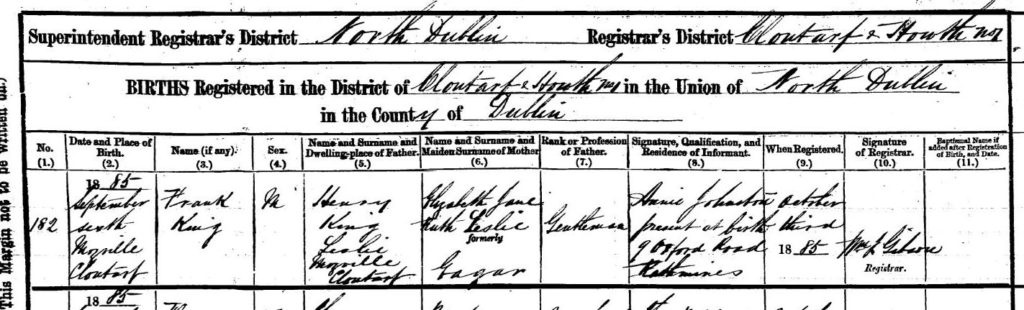 Superintendent Registrar's District North Dublin Registrar's District Clontarf & Howth No 1
BIRTHS Registered in the District of Clontarf & Howth No 1 in the Union of North Dublin
in the County of Dublin
This Margin not to be written on.
No. (1.)
Date and Place of Birth. (2.)
Name (if any). (3.)
Sex. (4.)
Name and Surname and Dwelling-place of Father. (5.)
Name and Surname and Maiden Surname of Mother (6.)
Rank or Profession of Father. (7.)
Signature, Qualification, and Residence of Informant. (8.)
When Registered. (9.)
Signature of Registrar. (10.)
Baptismal Name if added after Registration of Birth, and Date. (11.)
182
1885
September
sixth
Moyville
Clontarf
Frank
King
M
Henry
King
Leslie
Moyville
Clontarf
Elizabeth Jane
Ruth Leslie
formerly
Gagar
Gentleman
Annie Johnston
present at birth
9 Oxford Road
Rathmines
October
third
1885
Wm J Gibson
Registrar.
1885